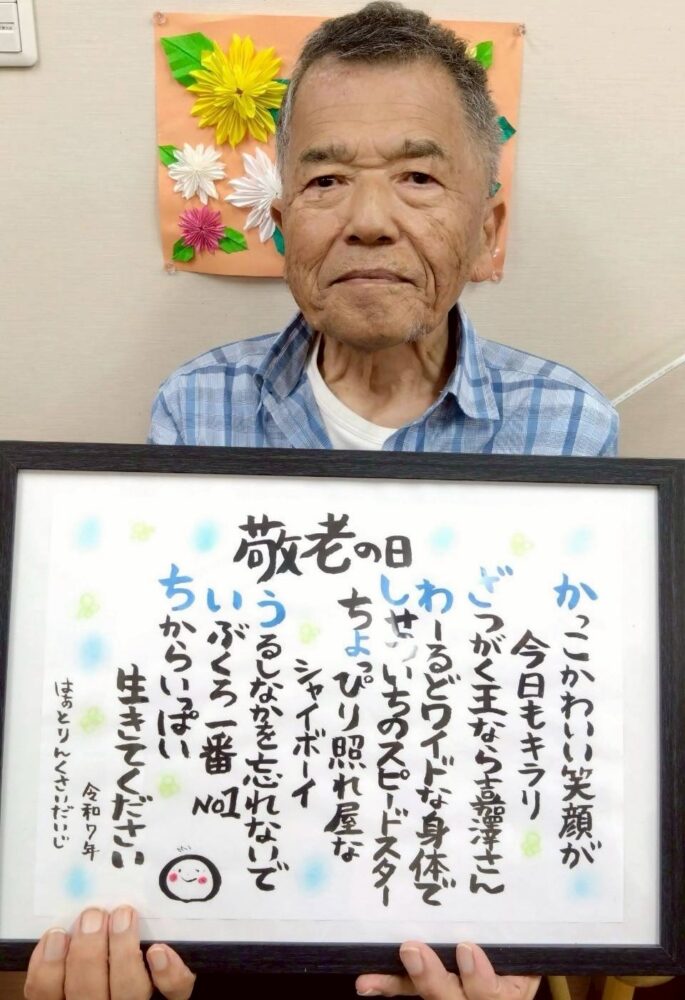 敬老の日
かっこかわい笑顔が
今日もキラリ
ざつがく王なら嘉澤さん
わーるどワイドな身体で
しせついちのスピードスター
ちょっぴり照れ屋な
シャイボーイ
うるしなかを忘れないで
いぶくろ一番 NO1
ちからいっぱい
生きてください
令和7年
はぁとりんくさいだいじ